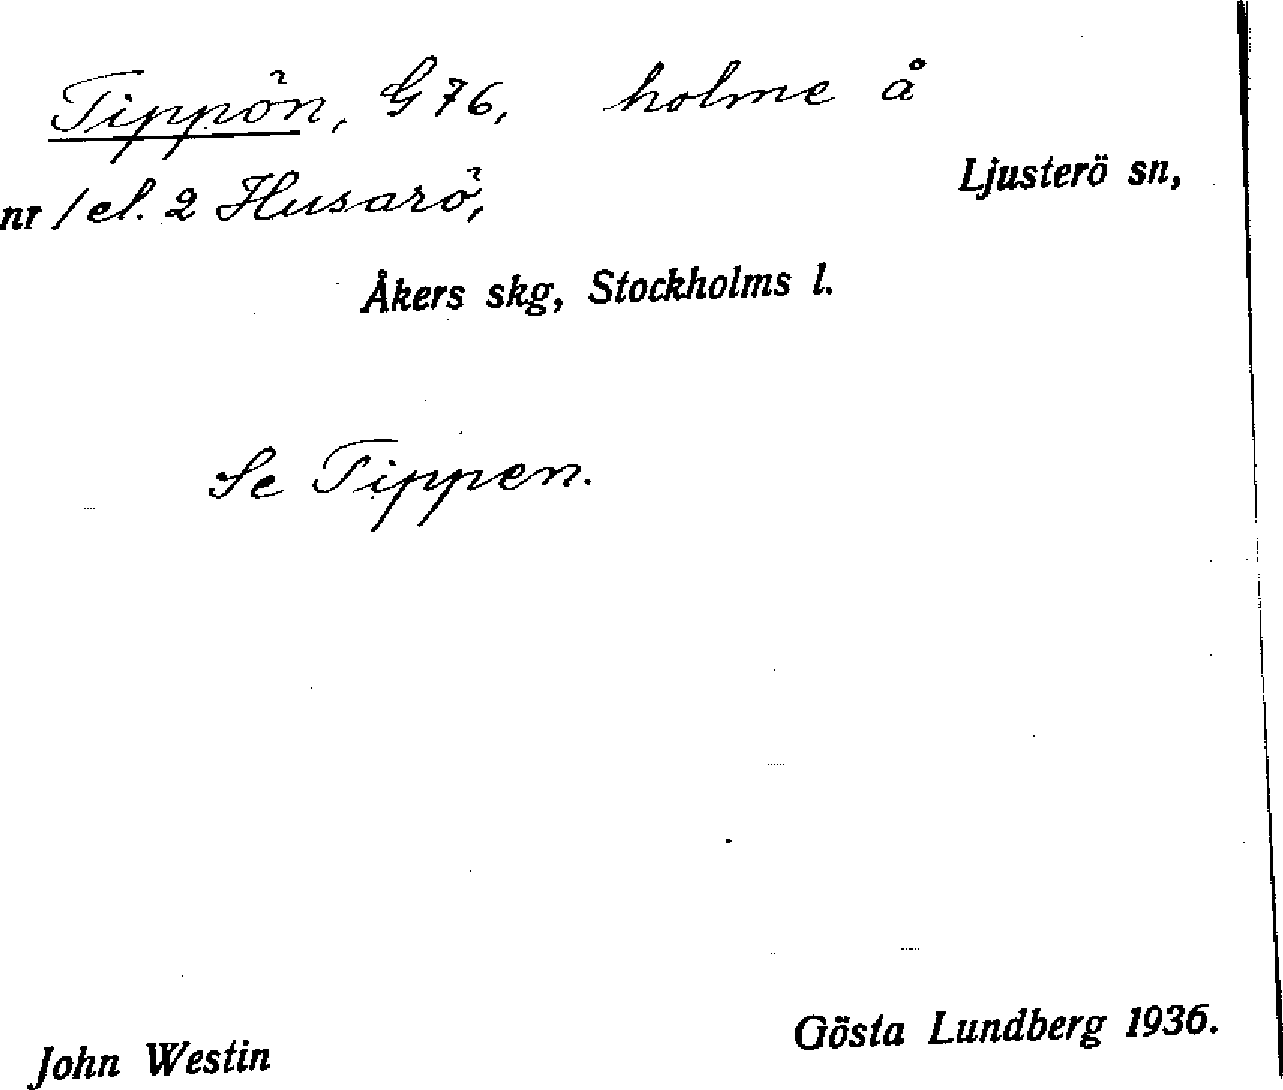 Tippön, G 76, holme å
Ljusterö sn,
nr 1 el. 2 Husarö,
Åkers skg, Stockholms l.
Se Tippen.
Gösta Lundberg 1936.
John Westin